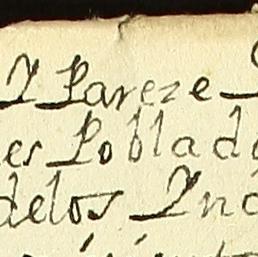 Y Pareze
es Poblad
delos Ind